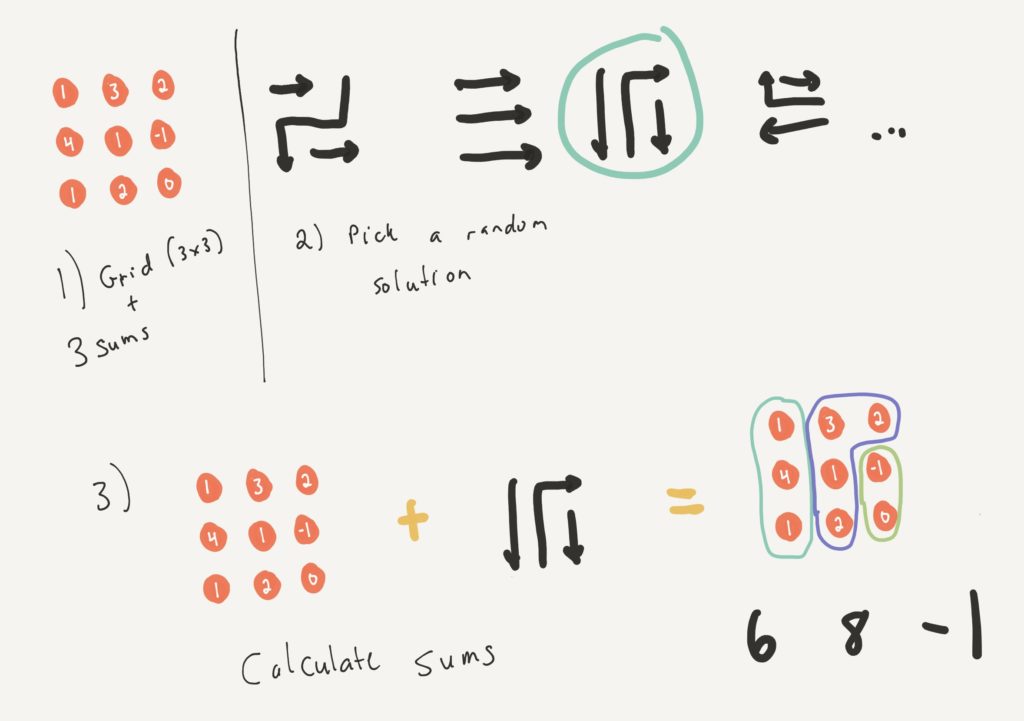 1 3 2
4 1 -1
1 2 0
1) Grid (3x3)
+
3 sums
...
2) Pick a random
solution
3)
1 3 2
4 1 -1
1 2 0
+
=
1 3 2
4 1 -1
1 2 0
6 8 -1
Calculate sums